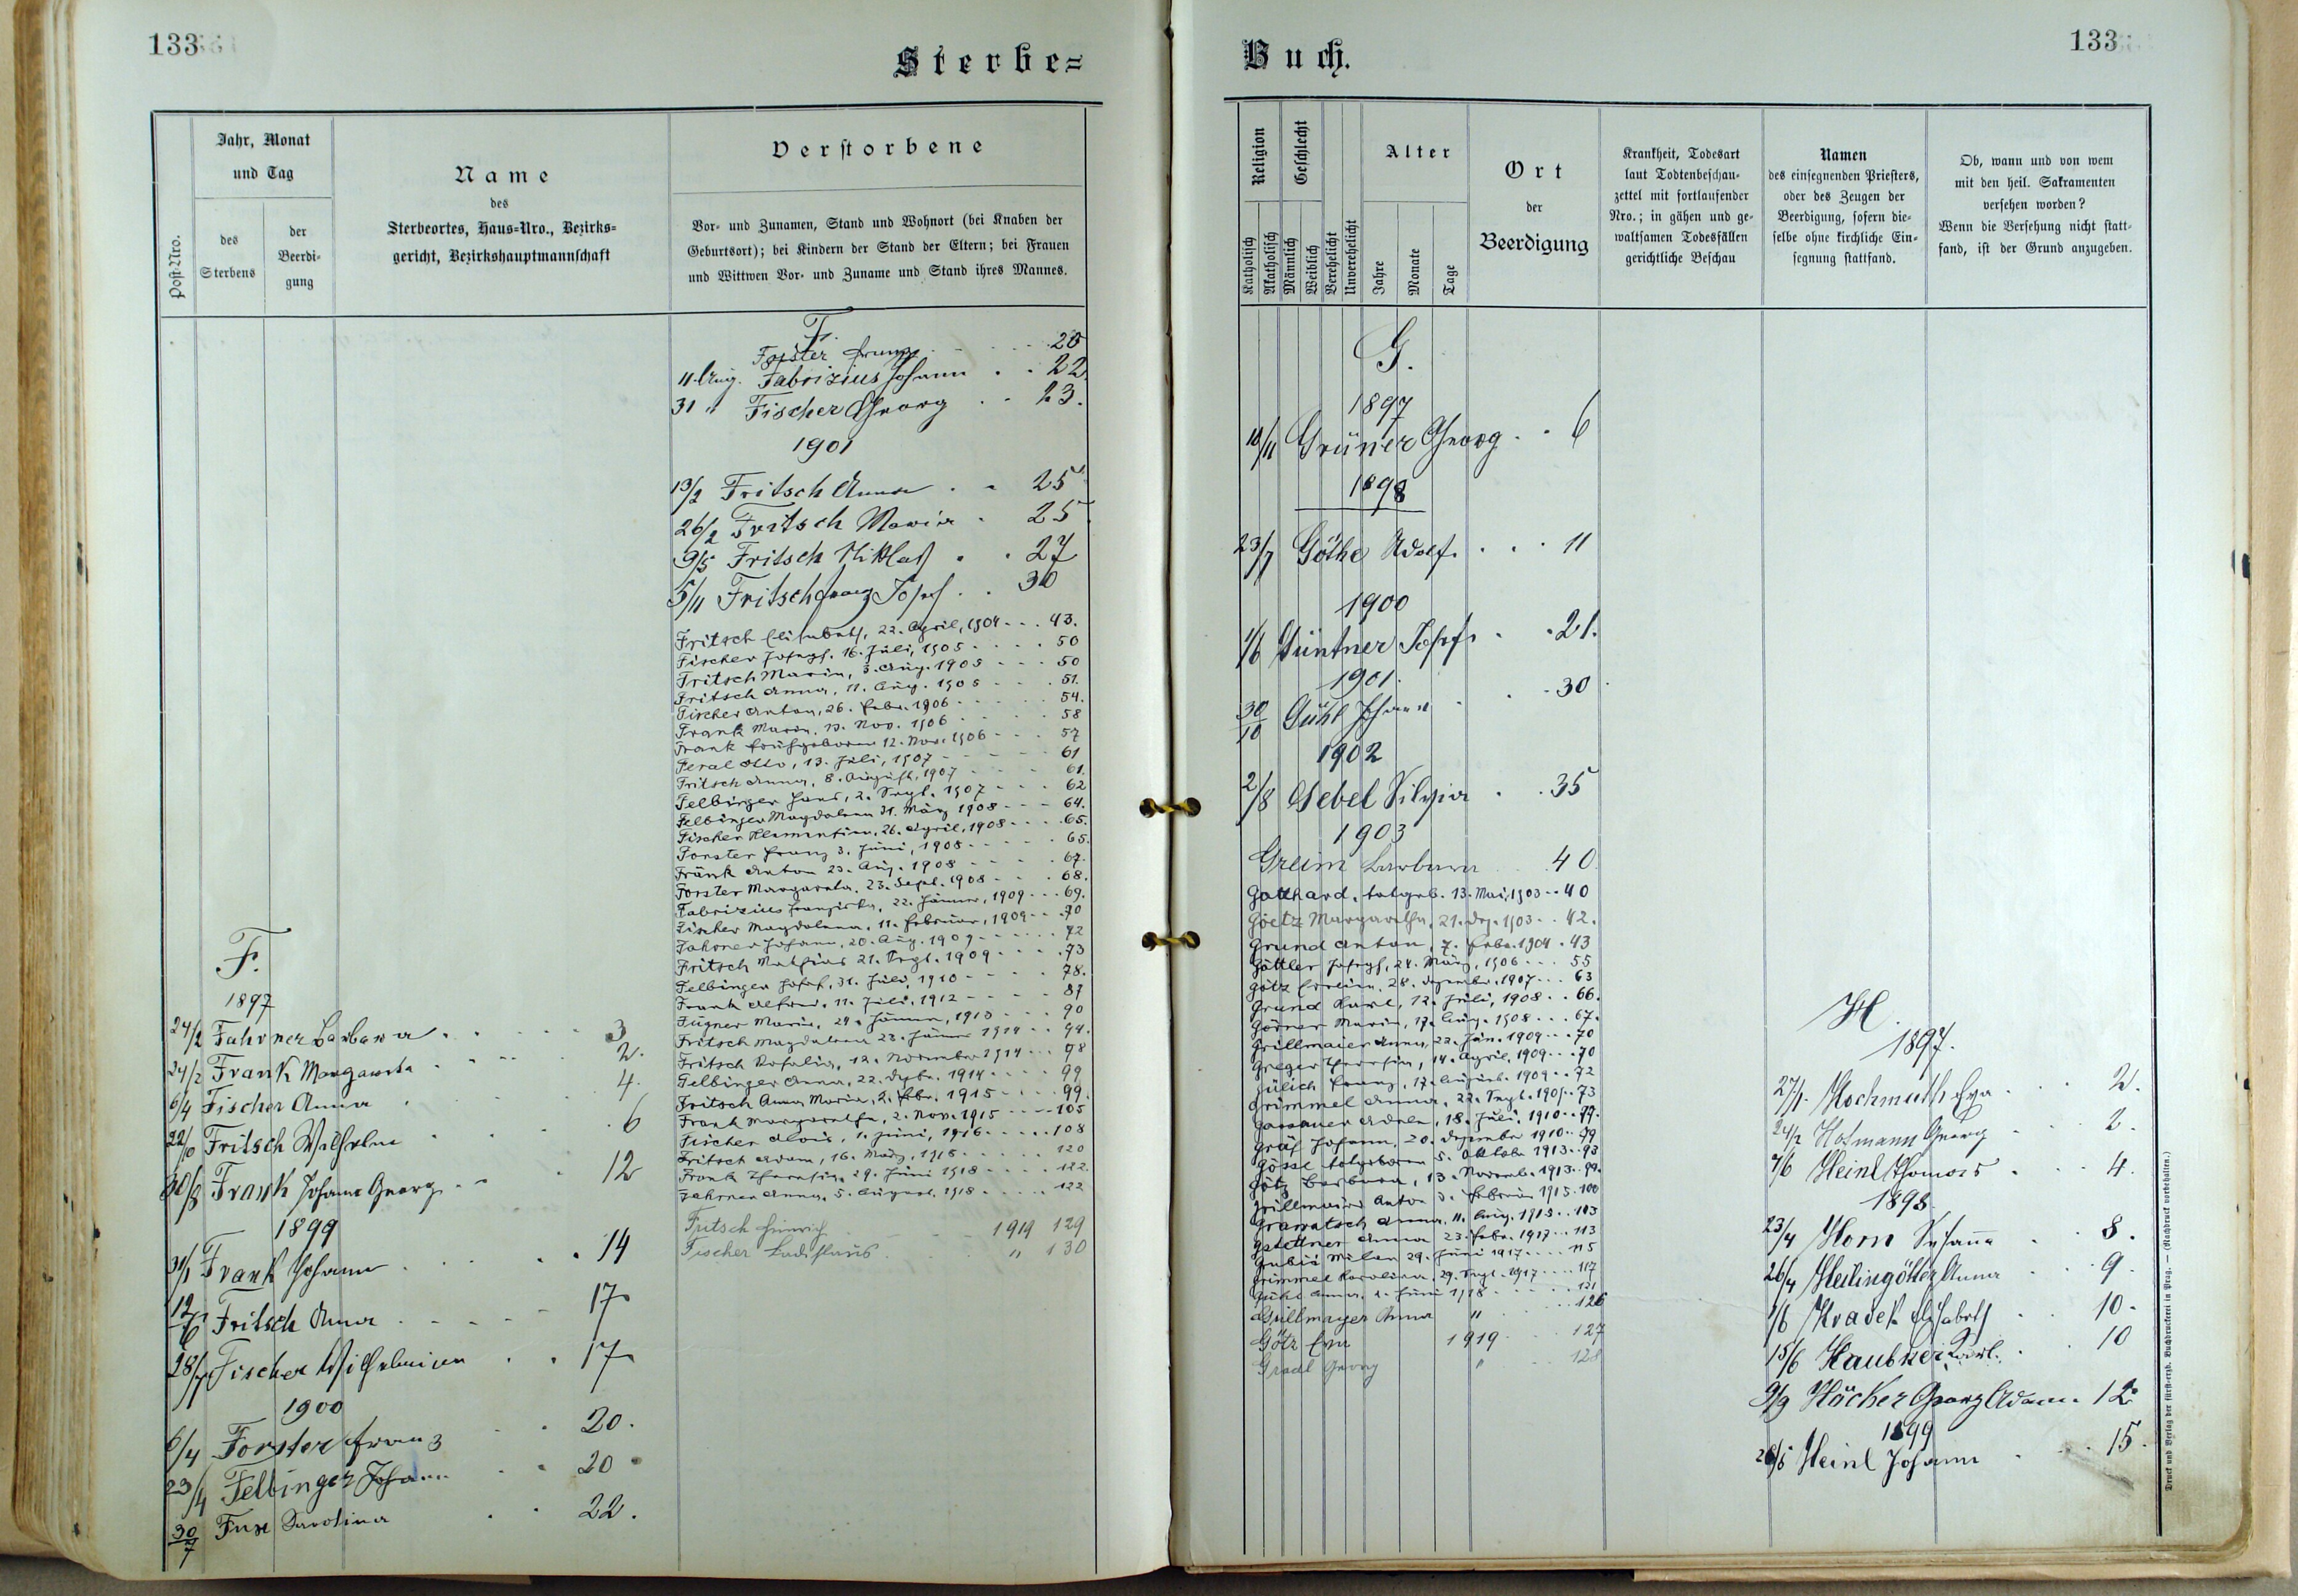 133
Sterbe=
Post-Nro.
Jahr, Monat
und Tag
des
Sterbens
der
Beerdi-
gung
Name
des
Sterbeortes, Haus-Nro., Bezirks-
gericht, Bezirkshauptmannschaft
Verstorbene
Vor- und Zunamen, Stand und Wohnort (bei Knaben der
Geburtsort); bei Kindern der Stand der Eltern; bei Frauen
und Wittwen Vor- und Zuname und Stand ihres Mannes.
F.
1897
24/2 Fahrner Barbara 3
24/2 Frank Margareta 2.
6/4 Fischer Anna 4.
Fritsch Wilhelm 6
Frank Johann Georg 12
1899
31/1 Frank Johann 14
12/6 Fritsch Anna 17
28/7 Fischer Wilhelmine 17
1900
6/4 Forster Franz 20.
23/4 Felbinger Johann 20
30/7 Fux Karolina 22.
F.
Forster Franz 20
11. Aug. Fabrizius Johann 22.
31 " Fischer Georg 23.
1901
13/2 Fritsch Anna 25
26/2 Fritsch Maria 25
9/5 Fritsch Niklas 27
5/11 Fritsch Franz Josef 30
Fritsch Elisabeth, 22. April, 1904 43.
Fischer Joseph. 16. Juli, 1905 50
Fritsch Maria, 3. Aug. 1905 50
Fritsch Anna, 11. Aug. 1905 51.
Fischer Anton, 26. Febr. 1906 54.
Frank Maria, Nov. 1906 58
Frank 12. Nov. 1906 57
Feral Otto, 13. Juli, 1907 61
Fritsch Anna, 8. August, 1907 61.
Felbinger Hans, 2. Sept. 1907 62
Felbinger Magdalena 31. März 1908 64.
Fischer Klementine, 26. April, 1908 65.
Forster Franz 3. Juni, 1908 65.
Fränk Anton 23. Aug. 1908 67.
Forster Margareta, 23. Sept. 1908 68.
Fabrizius Franziska, 22. Jänner, 1909 69.
Fischer Magdalena, 11. Februar, 1909 70
Fahrner Johann, 20. Aug. 1909 72
Fritsch Mathias 21. Sept. 1909 73
Felbinger Josef, 31. Juli, 1910 78.
Frank Alfred, 11. Juli, 1912 87
Fügner Maria, 29. Jänner, 1913 90
Fritsch Magdalena 28. Jänner 1914 94.
Fritsch Rosalia, 12. November 1914 98
Felbinger Anna, 22. Dezbr. 1914 99
Fritsch Anna Maria, 2. Febr. 1915 99.
Frank Margaretha, 2. Nov. 1915 105
Fischer Alois, 1. Juni, 1916 108
Fritsch Adam, 16. März, 1918 120
Frank Theresia, 29. Juni 1918 122
Fahrner Anna, 5. August, 1918 122
Fritsch Heinrich 1919 129
Fischer Ladislaus " 130
133
Buch.
Religion
Katholisch
Akatholisch
Geschlecht
Männlich
Weiblich
Verehelicht
Unverehelicht
Alter
Jahre
Monate
Tage
Ort
der
Beerdigung
Krankheit, Todesart
laut Todtenbeschau-
zettel mit fortlaufender
Nro.; in gähen und ge-
waltsamen Todesfällen
gerichtliche Beschau
Namen
des einsegnenden Priesters,
oder des Zeugen der
Beerdigung, sofern die-
selbe ohne kirchliche Ein-
segnung stattfand.
Ob, wann und von wem
mit den heil. Sakramenten
versehen worden?
Wenn die Versehung nicht statt-
fand, ist der Grund anzugeben.
G.
1897
10/11 Grüner Georg 6
1898
23/7 Göthe Adolf 11
1900
1/6 Güntner Josef 21.
1901.
30/10 Gühl Johann 30
1902
2/8 Gebel Silvia 35
1903
Greim Barbara 40
Gotthard, totgeb. 13. Mai, 1903 40
Göetz Margaretha, 21. Dez. 1903 42.
Grund Anton, 7. Febr. 1904 43
Göttler Joseph, 24. März, 1906 55
Götz 28. Dezember 1907 63
Grund Karl, 12. Juli, 1908 66.
Görner Maria, 17. Aug. 1908 67.
Grillmaier Anna, 22. Jän. 1909 70
Greger Theresia, 14. April, 1909 70
Jülich Franz, 17. August 1909 72
Grimmel Anna, 22. Sept. 1909 73
Gassauer Adele, 18. Juli, 1910 77.
Gräf Johann, 20. Dezember 1910 79
Gössl totgeboren 5. Oktober 1913 93
Götz Barbara, 13. November 1913 94.
Grillmaier Anton 3. Februar 1915 100
Anna, 11. Aug. 1915 103
Gstettner Anna 23. Febr. 1917 113
Grubiá Milan 29. Juni 1917 115
Grimmel Karolina, 29. Sept. 1917 117
Gühl Anna, 2. Juni 1918 121
Grillmayer Anna " 126
Götz Eva 1919 127
Gradl Georg " 128
H.
1897.
27/1. Hochmuth Eva 2.
24/2 Hofmann Georg 2.
7/6 Heinl Thomas 4.
1898.
23/4 Horn Susanna 8.
26/4 Heilingötter Anna 9.
1/6 Hradek Elisabeth 10.
15/6 Haubner Karl. 10
9/9 Häcker Georg Adam 12
1899
Heinl Johann 15.
Druck und Verlag der fürst-erzb. Buchdruckerei in Prag. — (Nachdruck vorbehalten.)